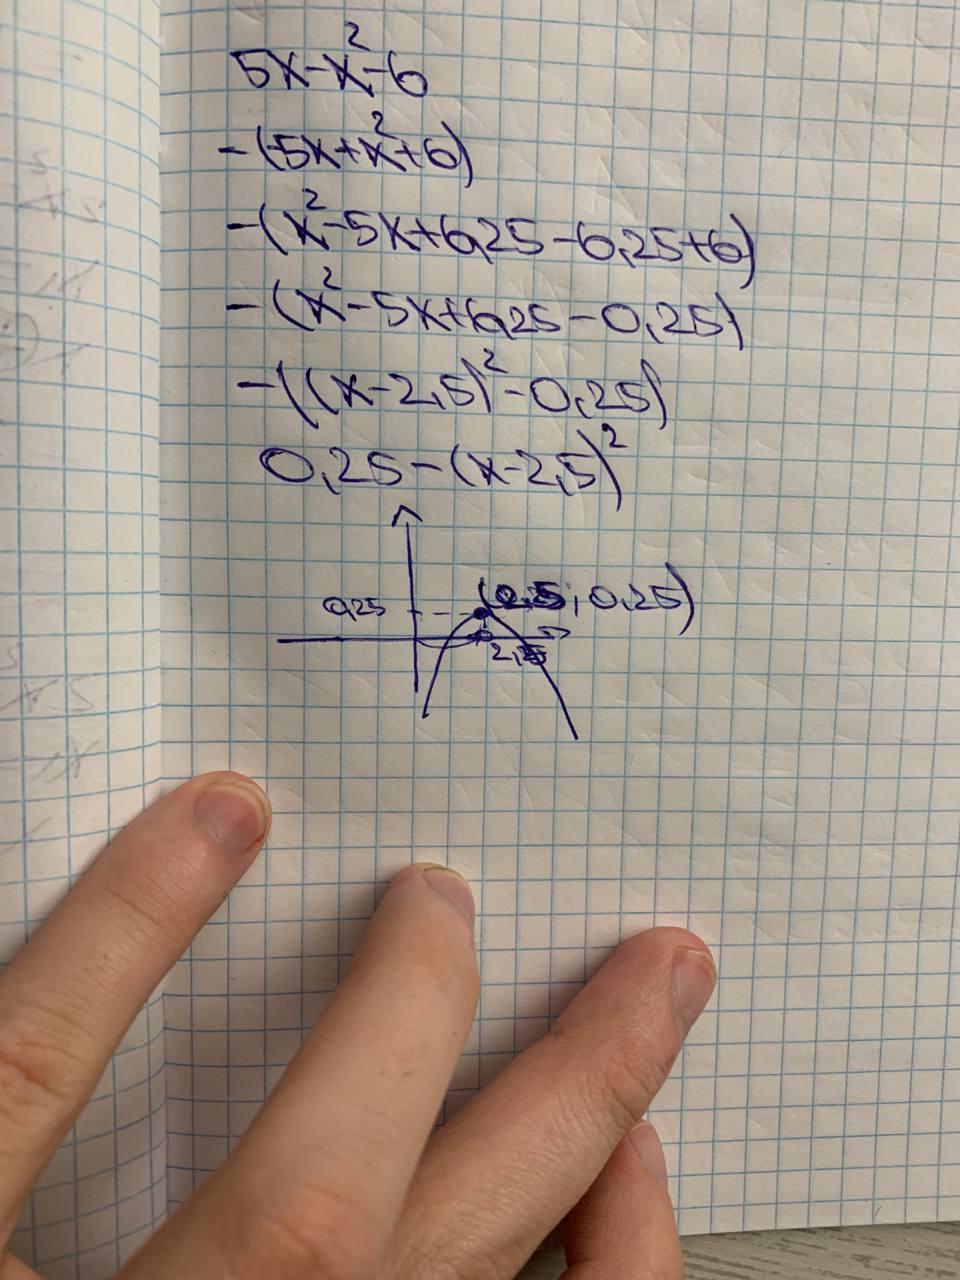 5x-x²-6
-(-5x+x²+6)
-(x²-5x+6,25-6,25+6)
-(x²-5x+6,25-0,25)
-((x-2,5)²-0,25)
0,25-(x-2,5)²
(2,5; 0,25)
0,25
2,5